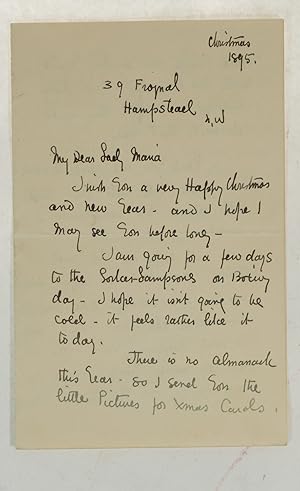 Christmas
1895.
39 Frognal
Hampstead
N.W
My Dear Lady Maria
I wish you a very Happy Christmas
and new Year - and I hope I
may see you before long -
I am going for a few days
to the Locker-Sampsons on Boxing
day - I hope it isn't going to be
cold - it feels rather like it
to day.
There is no Almanack
this Year - so I send you the
little Pictures for Xmas Carols.